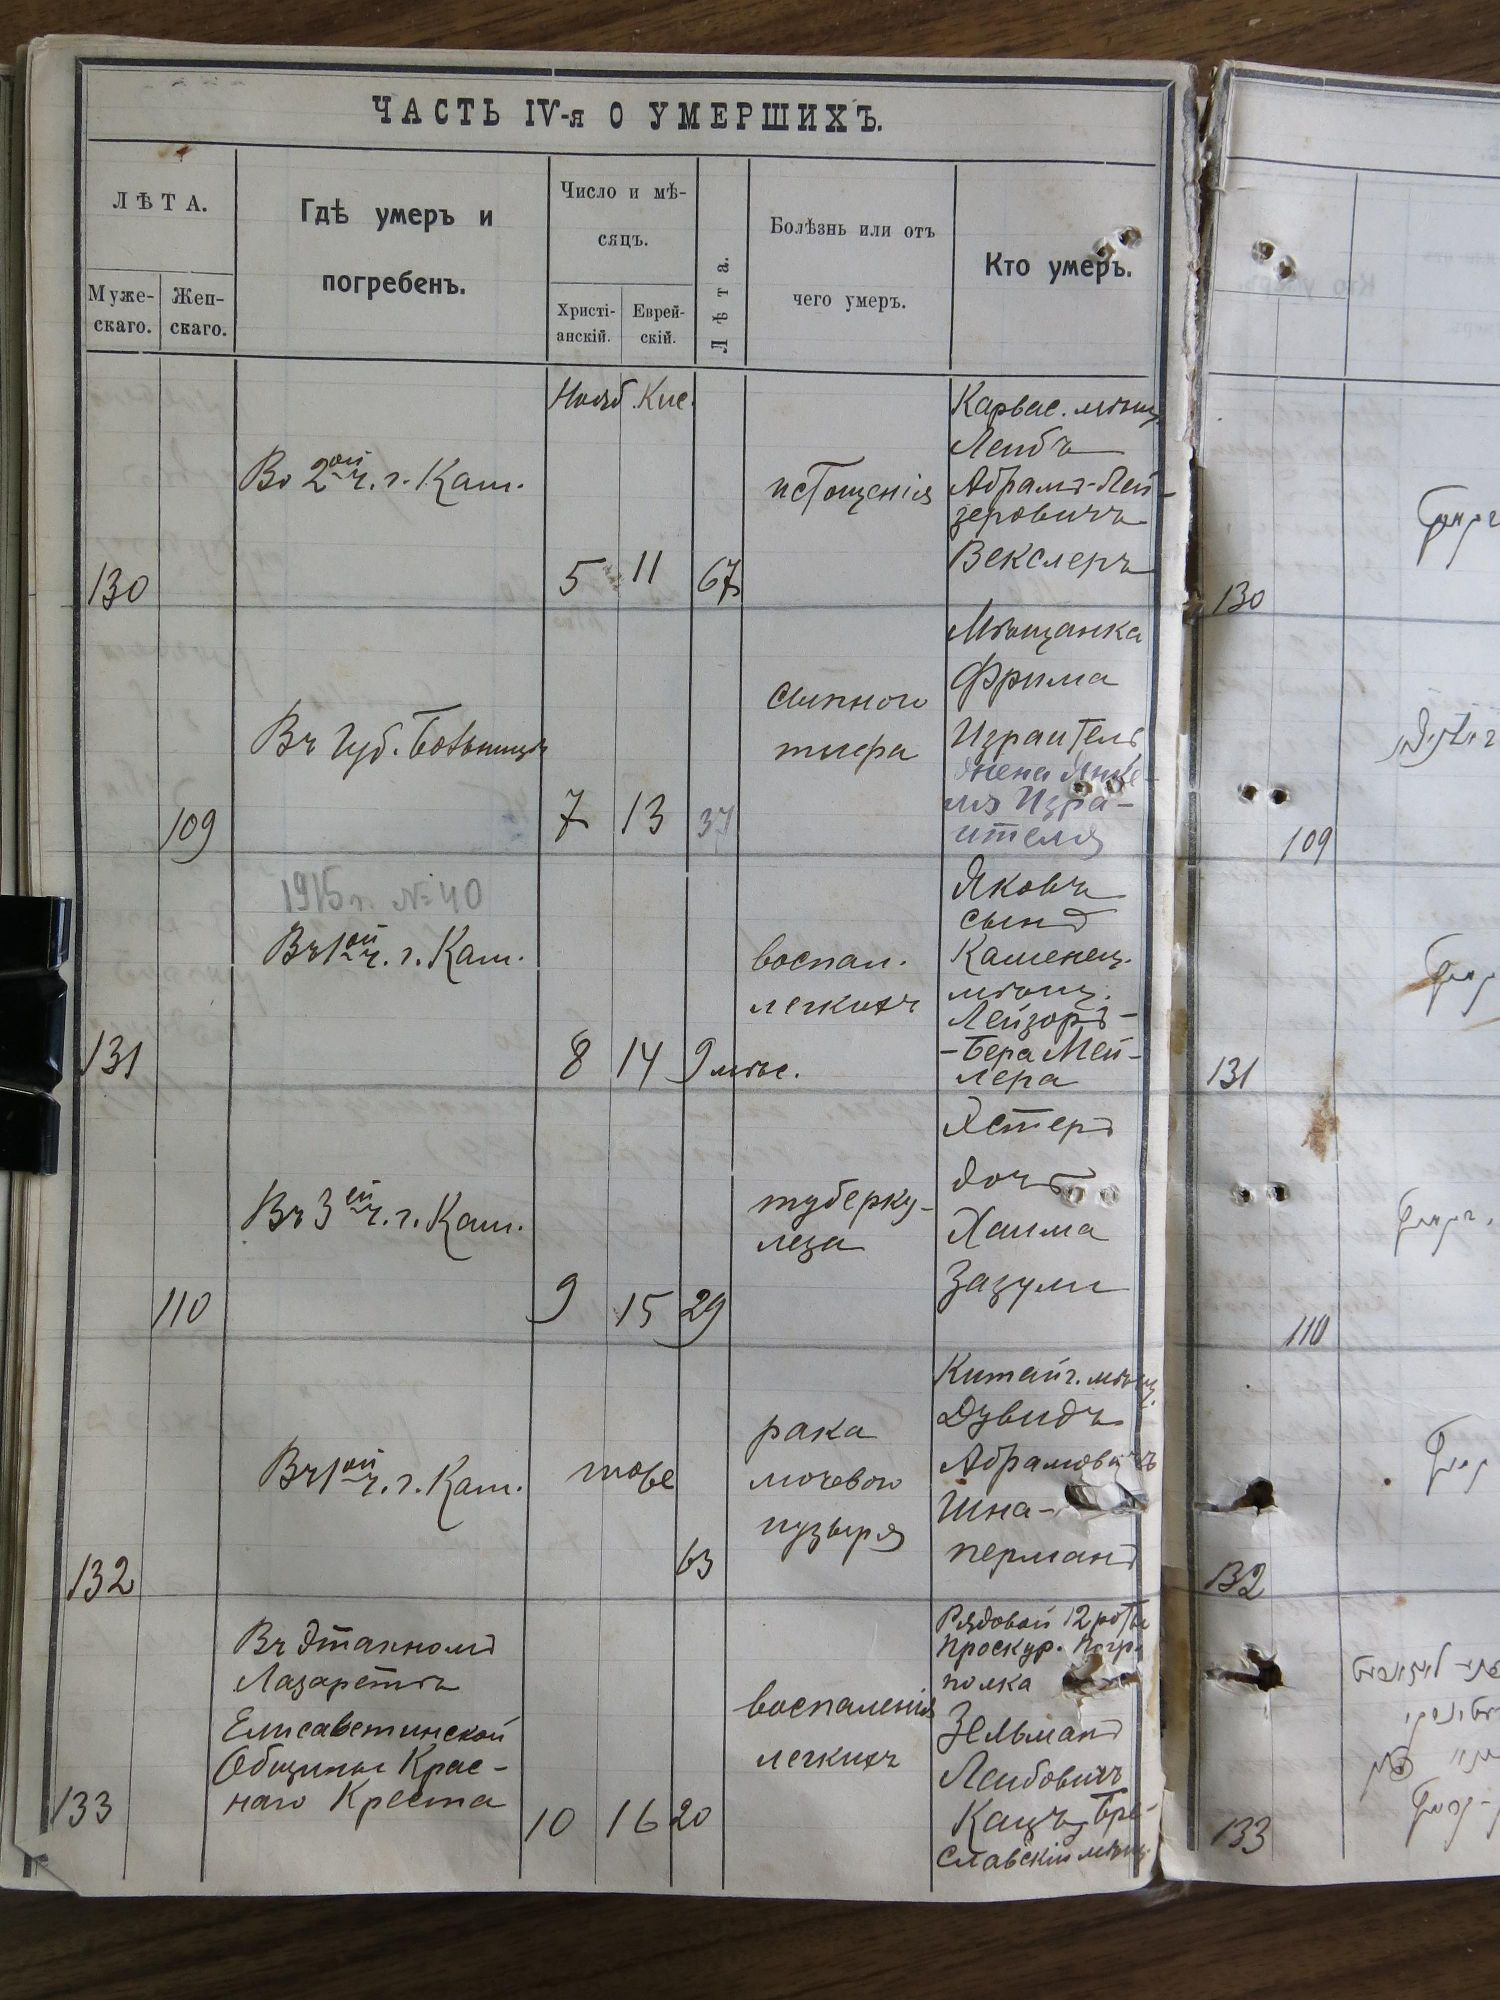 ЧАСТЬ IV-я О УМЕРШИХЪ.
ЛѢТА.
Муже-
скаго.
Жен-
скаго.
Гдѣ умеръ и
погребенъ.
Число и мѣ-
сяцъ.
Христі-
анскій.
Еврей-
скій.
Лѣта.
Болѣзнь или отъ
чего умеръ.
Кто умеръ.
Нояб. Кис.
130
Во 2ой ч. г. Кам.
5 11 67
истощенія
Карвас. мѣщ.
Лейбъ
Абрамъ-Лей-
зеровичъ
Векслеръ
109
Въ Губ. Больницѣ
7 13 37
сыпного
тифа
Мѣщанка
Фрима
Израитель
жена Янке-
ля Изра-
ителя
1915 г. № 40
131
Въ 1ой ч. г. Кам.
8 14 9 мѣс.
воспал.
легкихъ
Яковъ
сынъ
Каменец.
мѣщ.
Лейзоръ-
-Бера Мей-
лера
110
Въ 3ей ч. г. Кам.
9 15 29
туберку-
леза
Эстеръ
дочь
Хаима
Зазули
132
Въ 1ой ч. г. Кам.
тоже
63
рака
мочевого
пузыря
Китайг. мѣщ.
Дувидъ
Абрамовичъ
Шна-
перманъ
133
Въ Этапномъ
Лазаретѣ
Елисаветинской
Общины Крас-
наго Креста
10 16 20
воспаленія
легкихъ
Рядовой 12 роты
Проскур. Погр.
полка
Зельманъ
Лейбовичъ
Кацъ, Бре-
славскій мѣщ.
130
109
131
110
132
133